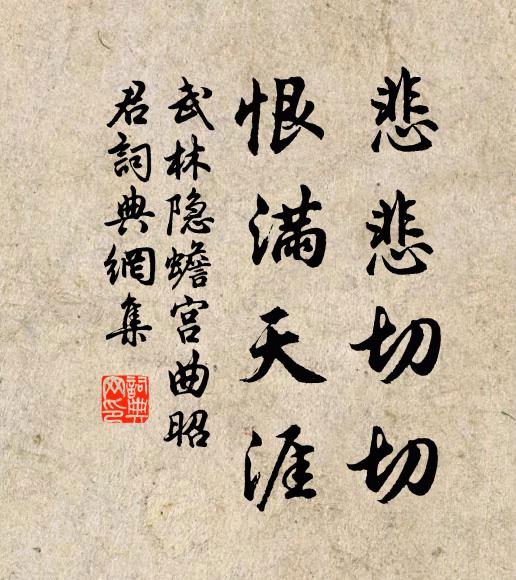 悲悲切切
恨满天涯
武林隐蟾宫曲昭
君词典網集
詞典
网印